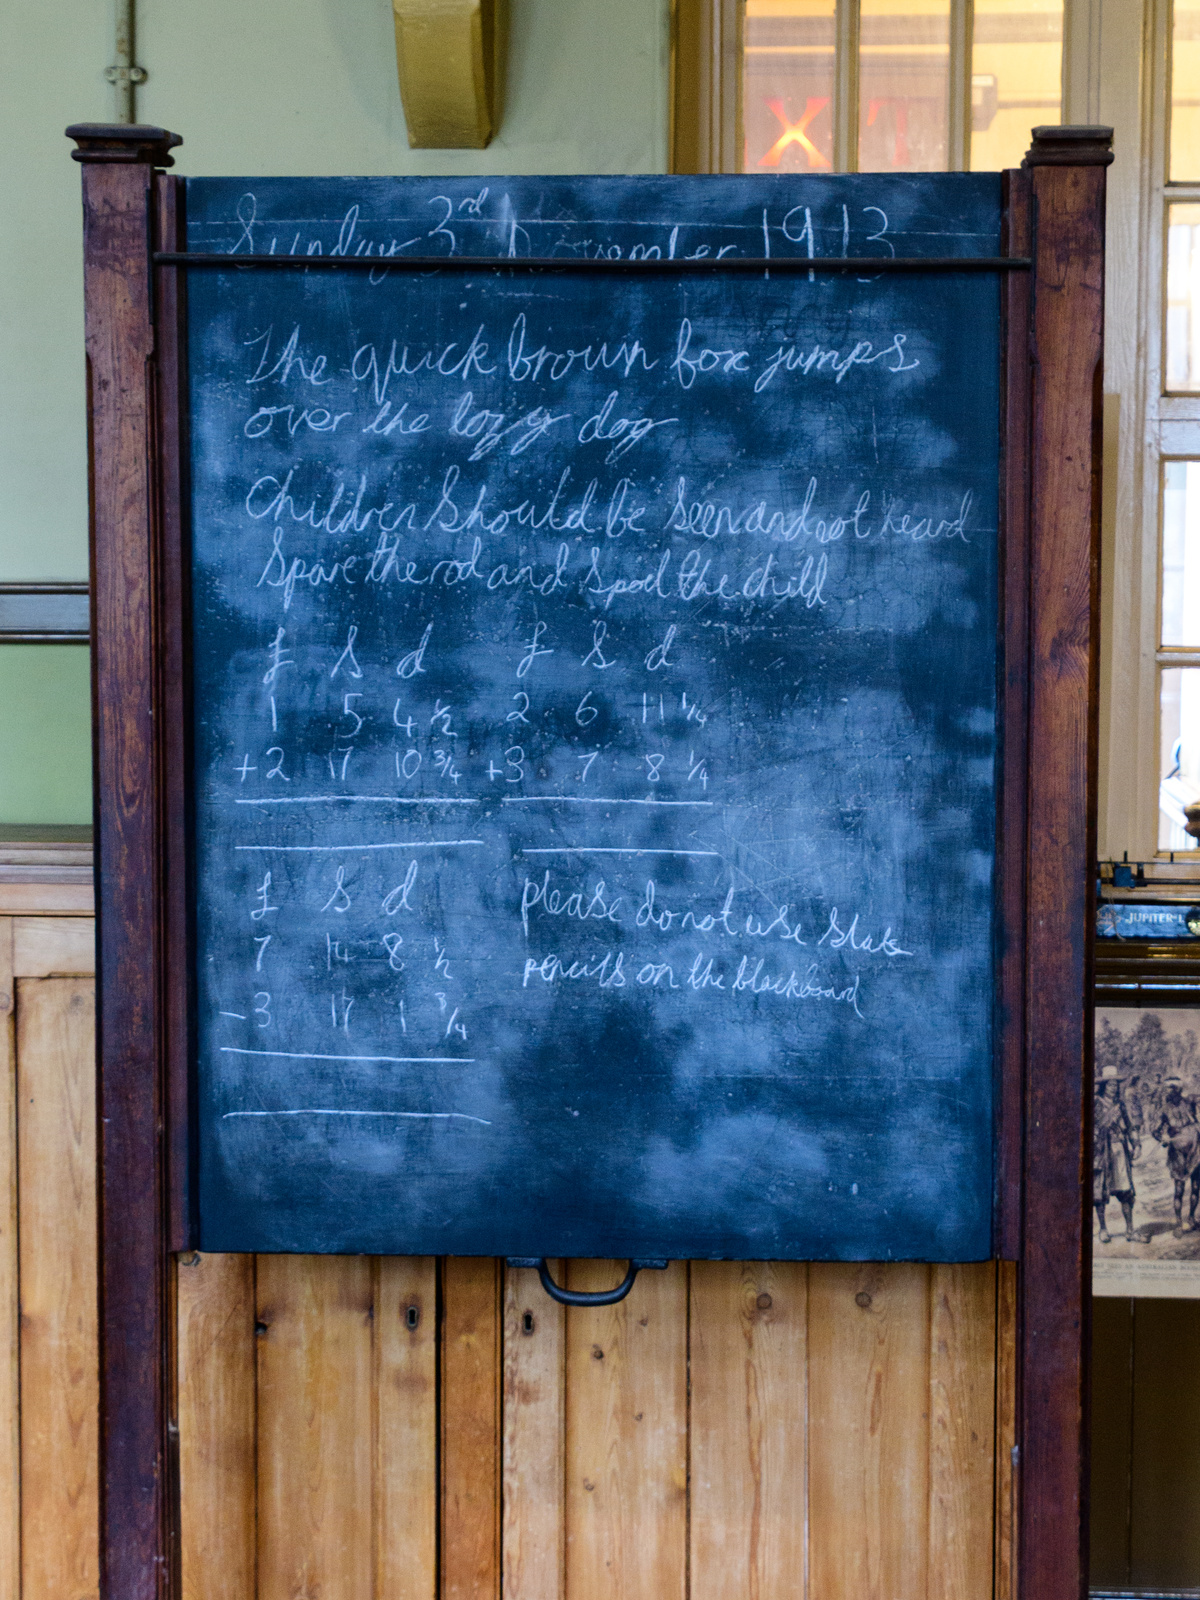 XT
Sunday 3rd November 1913
The quick brown fox jumps
over the lazy dog
Children Should be Seen and not heard
Spare the rod and Spoil the child
£ S d £ S d
1 5 4 ½ 2 6 11 ¼
+2 17 10 ¾ +3 7 8 ¼
£ S d
7 14 8 ½
-3 17 1 ¾
please do not use Slate
pencils on the blackboard
JUPITER